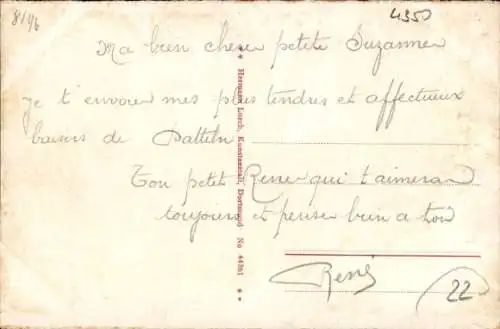 8/46
4350
Ma bien chere petite Suzanne
Je t'envoie mes plus tendres et affectueux
baisers de Datteln
Ton petit Rene qui t'aimera
toujours et pense bien a toi
René
22
Hermann Lorch, Kunstanstalt, Dortmund No 44351